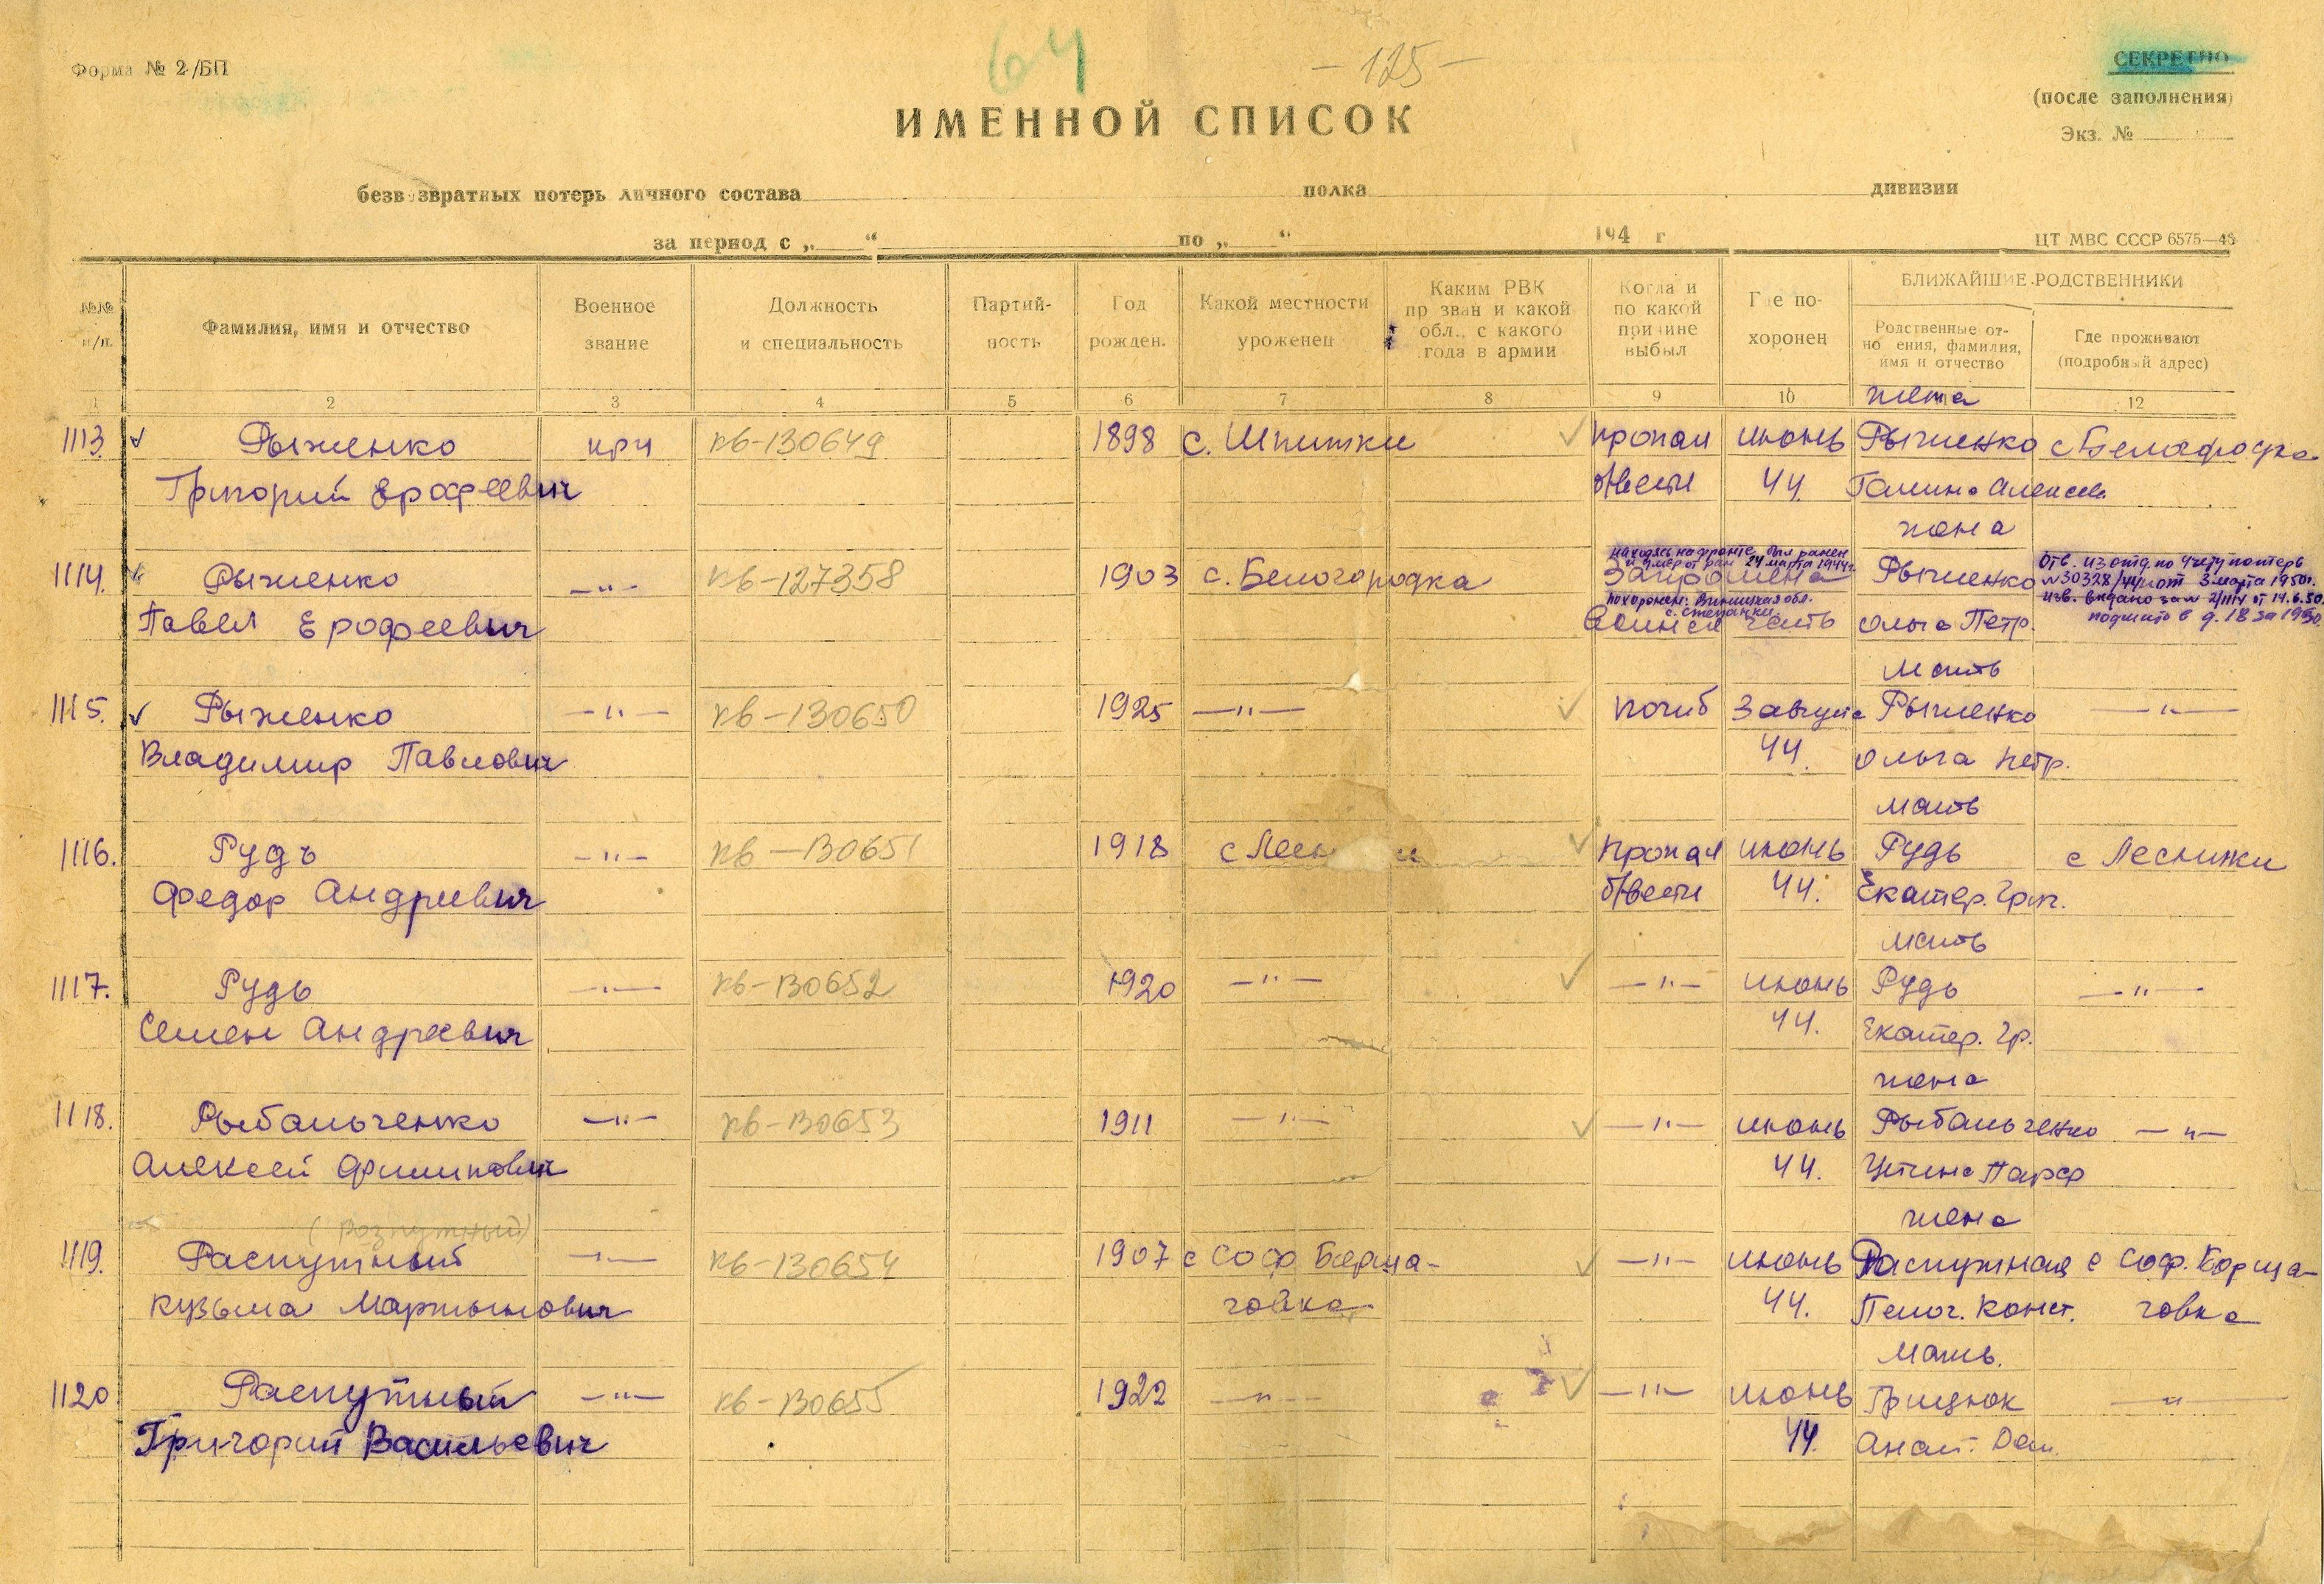 64
-125-
Форма № 2/БП
СЕКРЕТНО
(после заполнения)
Экз. №
ИМЕННОЙ СПИСОК
безвозвратных потерь личного состава полка дивизии
за период с „ “ по „ “ 194 г
ЦТ МВС СССР 6575—46
№№ п/п.
Фамилия, имя и отчество
Военное звание
Должность и специальность
Партийность
Год рожден.
Какой местности уроженец
Каким РВК призван и какой обл., с какого года в армии
Когда и по какой причине выбыл
Где похоронен
БЛИЖАЙШИЕ РОДСТВЕННИКИ
Родственные отношения, фамилия, имя и отчество
Где проживают (подробный адрес)
1 2 3 4 5 6 7 8 9 10 12
жена
1113. Рыженко крч кв-130649 1898 с. Шпитки пропал июнь Рыженко с Белогородка
Григорий Ерофеевич б/вести 44 Галина Алексеев.
жена
находясь на фронте был ранен
и умер от ран 24 марта 1944г.
Отв. из отд. по учету потерь
1114. Рыженко —"— кв-127358 1903 с. Белогородка Рыженко №30328/44 от 3 марта 1950г.
похоронен: Винницкая обл.
с. Степанки
изв. выдано за № 2/1114 от 14.6.50
Павел Ерофеевич часть Ольга Петр. подшито в д. 18 за 1950
мать
1115. Рыженко —"— кв-130650 1925 —"— погиб 3 августа Рыженко —"—
Владимир Павлович 44. Ольга Петр.
мать
1116. Рудь —"— кв-130651 1918 с Лес пропал июнь Рудь с Лесники
Федор Андреевич б/вести 44. Екатер. Григ.
мать
1117. Рудь —"— кв-130652 1920 —"— —"— июнь Рудь —"—
Семен Андреевич 44. Екатер. Гр.
жена
1118. Рыбальченко —"— кв-130653 1911 —"— —"— июнь Рыбальченко —"—
Алексей Филипович 44. Устина Парф
(Розпутный) жена
1119. Распутный —"— кв-130654 1907 с Соф. Борща- —"— июнь Распутная с Соф. Борща-
Кузьма Мартынович говка 44. Пелаг. Конст. говка
мать.
1120 Распутный —"— кв-130655 1922 —"— —"— июнь Грицюк —"—
Григорий Васильевич 44. Анаст. Дем.